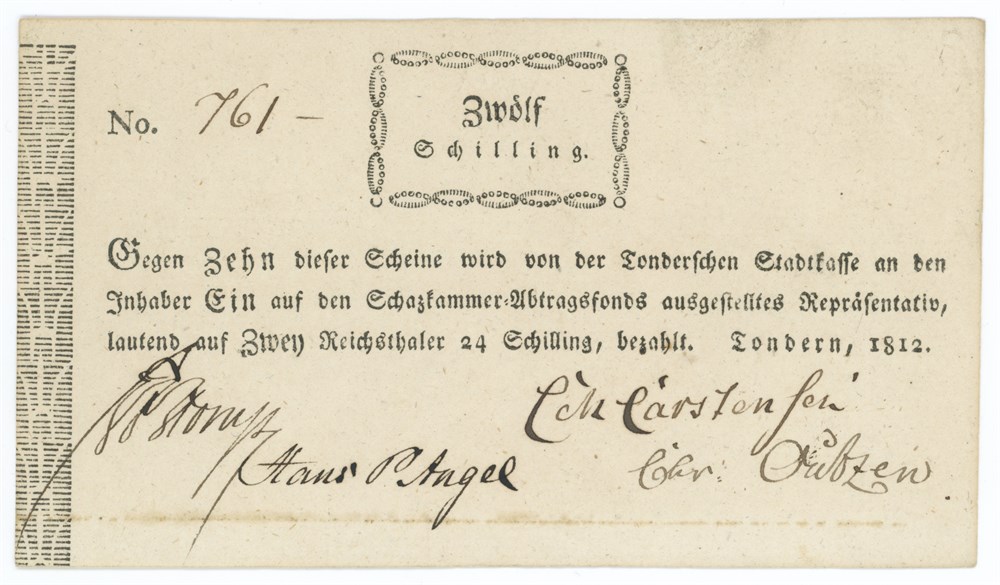 No. 761 —
Zwölf
Schilling.
Gegen Zehn dieser Scheine wird von der Tonderschen Stadtkasse an den
Inhaber Ein auf den Schazkammer-Abtragsfonds ausgestelltes Repräsentativ,
lautend auf Zwey Reichsthaler 24 Schilling, bezahlt. Tondern, 1812.
Carstensen
Hans P Angel